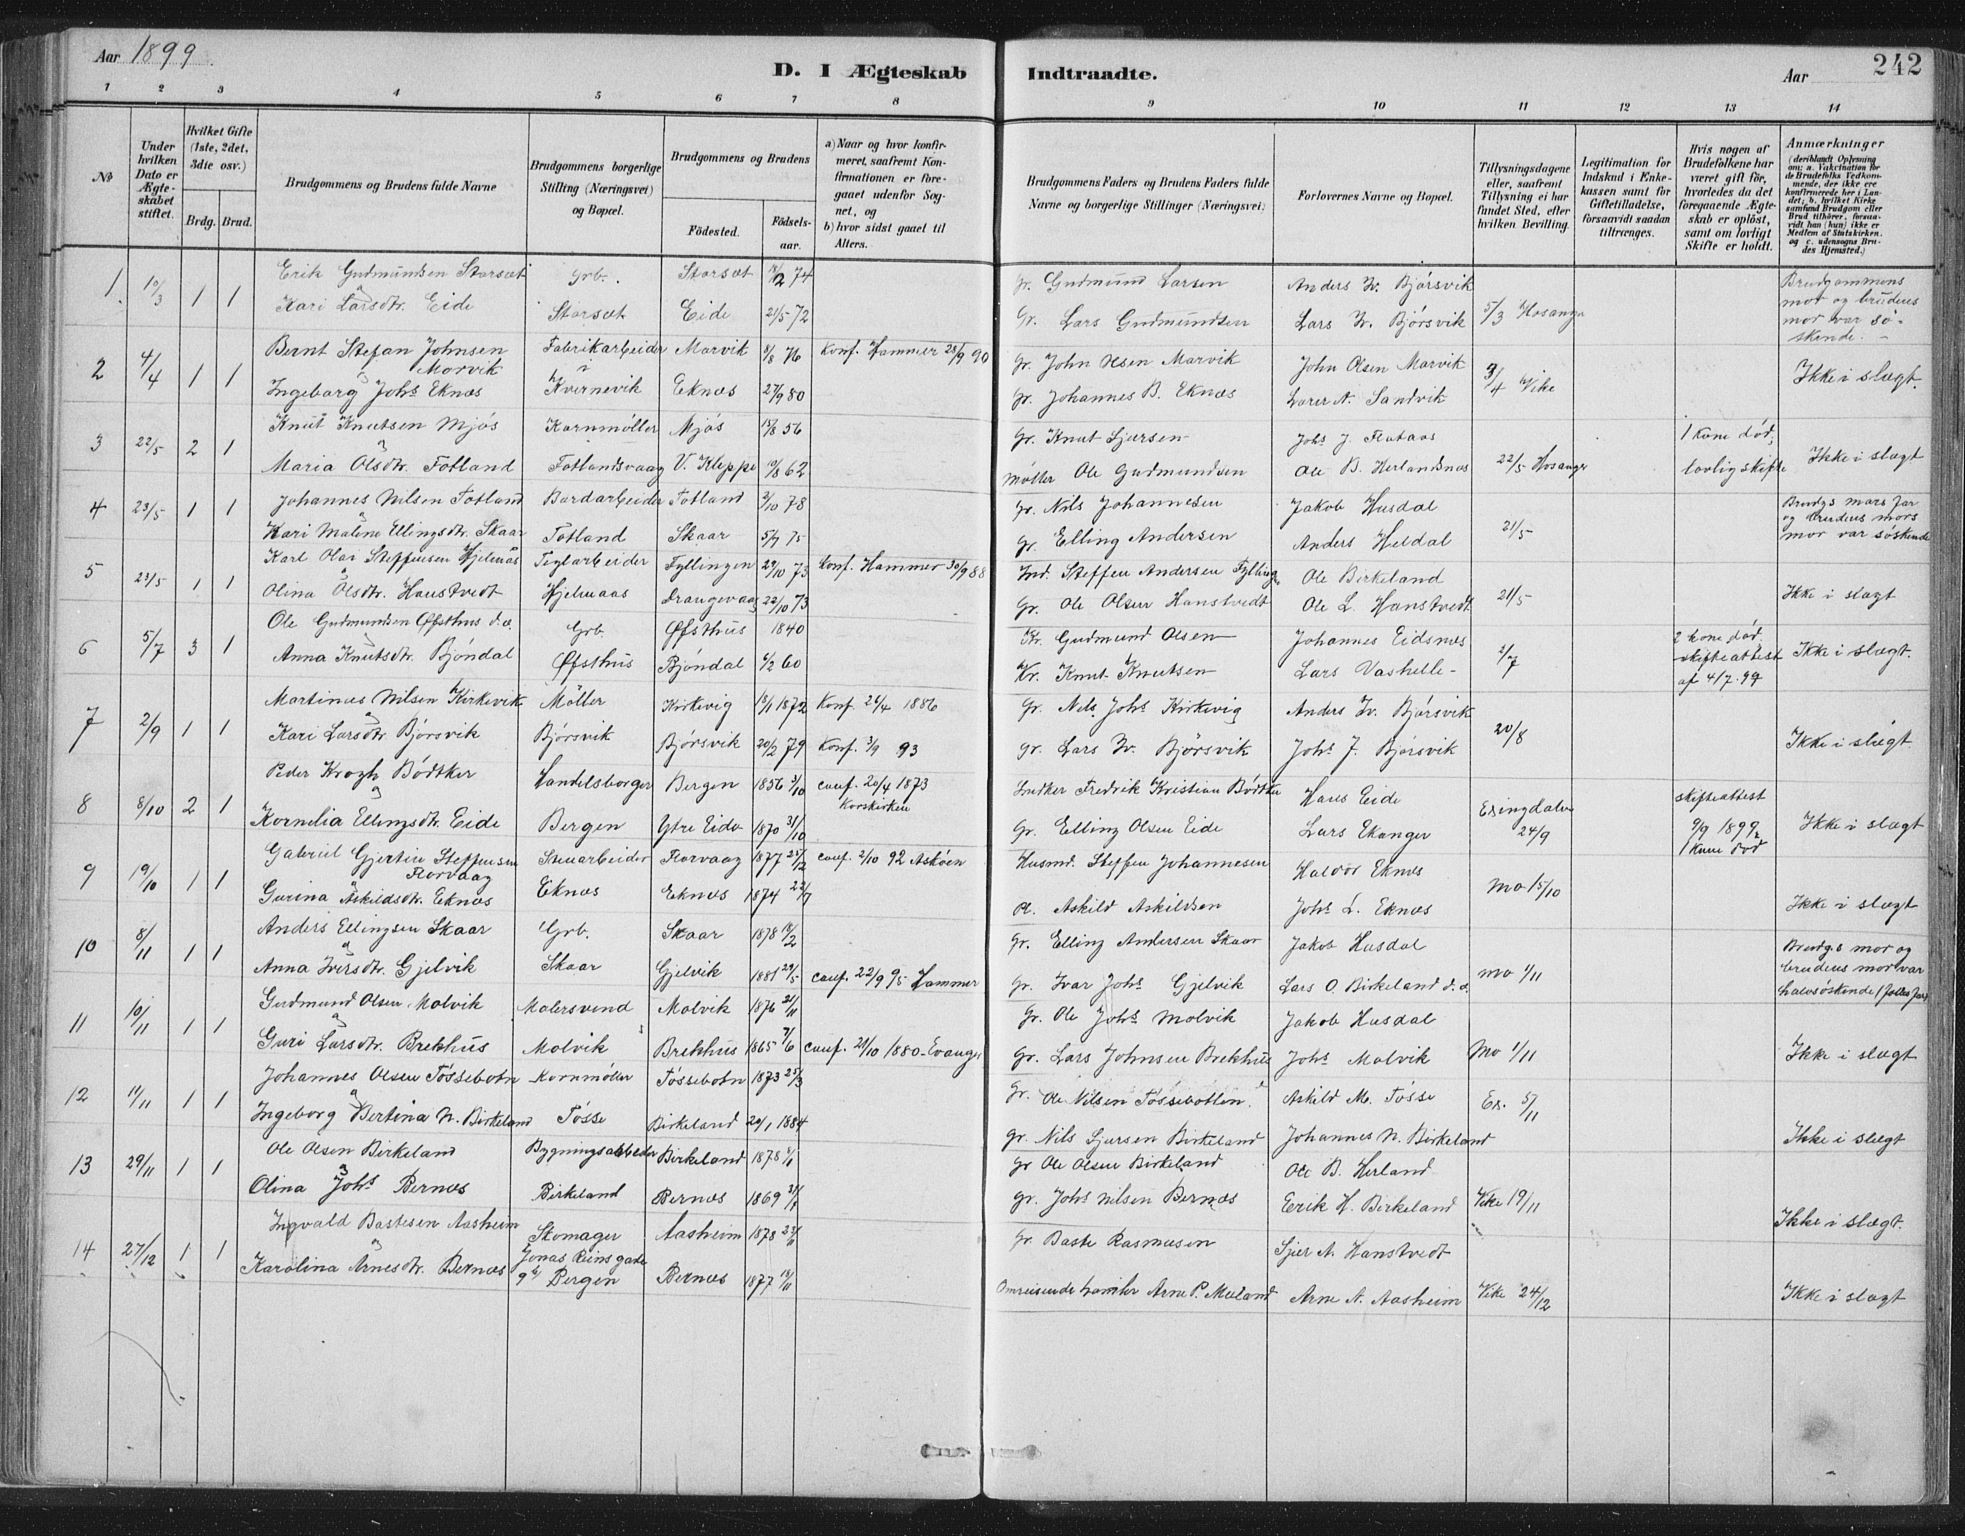 Aar 1899.
D. I Ægteskab Indtraadte.
Aar
242
1 2 3 4 5 6 7 8 9 10 11 12 13 14
No
Under hvilken Dato er Ægteskabet stiftet.
Hvilket Gifte (1ste, 2det, 3die osv.)
Brdg. Brud.
Brudgommens og Brudens fulde Navne
Brudgommens borgerlige Stilling (Næringsvei) og Bopæl.
Brudgommens og Brudens
Fødested. Fødselsaar.
a) Naar og hvor konfirmeret, saafremt Konfirmationen er foregaaet udenfor Sognet, og
b) hvor sidst gaaet til Alters.
Brudgommens Faders og Brudens Faders fulde Navne og borgerlige Stillinger (Næringsvei)
Forlovernes Navne og Bopæl.
Tillysningsdagene eller, saafremt Tillysning ei har fundet Sted, efter hvilken Bevilling.
Legitimation for Indskud i Enkekassen samt for Giftetilladelse, forsaavidt saadan tiltrænges.
Hvis nogen af Brudefolkene har været gift før, hvorledes da det foregaaende Ægteskab er opløst, samt om lovligt Skifte er holdt.
Anmærkninger (deriblandt Oplysning om: a. Vakcination for de Brudefolks Vedkommende, der ikke ere konfirmerede her i Landet; b. hvilket Kirkesamfund Brudgom eller Brud tilhører, forsaavidt han (hun) ikke er Medlem af Statskirken, og c. udensogns Brudes Hjemsted.)
1 10/3 1 1 Erik Gudmundsen Storsæt Grb. Storsæt 74 Gr. Gudmund Larsen Anders Iv. Bjørsvik 5/3 Hosanger Brudgommens mor og brudens mor var søskende.
Kari Larsdtr. Eide Storsæt Eide 21/5 72 Gr. Lars Gudmundsen Lars Iv. Bjørsvik
2 4/4 1 1 Bernt Stefan Johnsen Morvik Fabrikarbeider Morvik 8/8 76 Konf. Hammer 28/9 90 Gr. John Olsen Marvik John Olsen Marvik 3/4 Vike Ikke i slægt.
Ingeborg Johs Eknæs Kvernevik Eknæs 27/9 80 Gr. Johannes B. Eknæs A. Sandvik
3 22/5 2 1 Knut Knutsen Mjøs Kornmøller Mjøs 13/8 56 Gr. Knut Sjursen Johs J. Flataas 22/5 Hosanger 1 kone død, lovlig skifte Ikke i slægt
Maria Olsdtr. Fotland Fotlandsvaag V. Kleppe 10/8 62 Møller Ole Gudmundsen Ole B. Herlandsnæs
4 23/5 1 1 Johannes Nilsen Fotland Bordarbeider Fotland 3/10 78 Gr. Nils Johannesen Jakob Husdal 21/5 Brudgs mors far og brudens mors mor var søskende
Kari Malene Ellingsdtr. Skaar Fotland Skaar 5/7 75 Gr. Elling Andersen Anders Heldal
5 23/5 1 1 Karl Olai Steffensen Hjelmås Teglarbeider Fyllingen 29/10 73 Konf. Hammer 30/9 88 Ind. Steffen Andersen Fylling Ole Birkeland 21/5 Ikke i slægt
Olina Olsdtr. Hanstvedt Hjelmaas Drangevaag 22/10 73 Gr. Ole Olsen Hanstvedt Ole L. Hanstvedt
6 5/7 3 1 Ole Gudmundsen Øfsthus d.æ. Grb. Øfsthus 1840 Kr. Gudmund Olsen Johannes Eidsnæs 2/7 2 kone død, skifteattest af 4/7.99 Ikke i slægt.
Anna Knutsdtr. Bjøndal Øfsthus Bjøndal 6/2 60 Kr. Knut Knutsen Lars Vashelle
7 2/9 1 1 Martinus Nilsen Kirkevik Møller Kirkevig 18/1 1872 Konf. 24/4 1886 Gr. Nils Johs Kirkevig Anders Iv. Bjørsvik 20/8 Ikke i slægt
Kari Larsdtr. Bjørsvik Bjørsvik Bjørsvik 20/2 79 Konf. 3/9 93 Gr. Lars Iv. Bjørsvik Johs. J. Bjørsvik
8 8/10 2 1 Peder Krogh Bødtker Handelsborger Bergen 1856 3/10 conf. 20/4 1873 Korskirken Fredrik Kristian Bødtker Hans Eide Exingdalen 24/9 skifteattest 9/9 1899, 1 kone død Ikke i slægt
Kornelia Ellingsdtr. Eide Bergen Ytre Eide 1870 31/10 Gr. Elling Olsen Eide Lars Ekanger
9 19/10 1 1 Gabriel Gjertin Steffensen Florvaag Stenarbeider Florvaag 1877 25/12 conf. 2/10 92 Askøen Husmd. Steffen Johannesen Haldor Eknæs Mo 15/10 Ikke i slægt
Gurina Askildsdtr. Eknæs Eknæs Eknæs 1874 22/7 Pl. Askild Askildsen Johs. L. Eknæs
10 8/11 1 1 Anders Ellingsen Skaar Grb. Skaar 1878 12/2 Gr. Elling Andersen Skaar Jakob Husdal Mo 1/11 Brudgs mor og brudens mor var halvsøskende
Anna Iversdtr. Gjelvik Skaar Gjelvik 1881 29/5 conf. 22/9 95 Hammer Gr. Ivar Johs Gjelvik Lars O. Birkeland d.æ.
11 10/11 1 1 Gudmund Olsen Molvik Malersvend Molvik 1876 21/11 Gr. Ole Johs Molvik Jakob Husdal Mo 1/11 Ikke i slægt
Guri Larsdtr. Brekhus Molvik Brekhus 1865 7/6 conf. 21/10 1880 Evanger Gr. Lars Johnsen Brekhus Johs Molvik
12 11/11 1 1 Johannes Olsen Tøssebotn Kornmøller Tøssebotn 1873 25/3 Gr. Ole Nilsen Tøssebotten Askild M. Tøsse Ex. 5/11 Ikke i slægt
Ingeborg Bertina N. Birkeland Tøsse Birkeland 20/1 1884 Gr. Nils Sjursen Birkeland Johannes N. Birkeland
13 29/11 1 1 Ole Olsen Birkeland Bygningsarbeider Birkeland 1878 Gr Ole Olsen Birkeland Ole B. Herland Vike 19/11 Ikke i slægt.
Olina Johs Bernæs Birkeland Bernæs 1869 21/7 Gr. Johs Nilsen Bernæs Erik H. Birkeland
14 27/12 1 1 Ingvald Bastesen Aasheim Skomager Aasheim 1878 23/11 Gr. Baste Rasmusen Sjur A. Hanstvedt Vike 24/12 Ikke i slægt
Karolina Arnesdtr. Bernæs Jonas Reins gade Bergen Bernæs 1877 18/11 Omreisende Arne P. Mæland Arne A. Aasheim